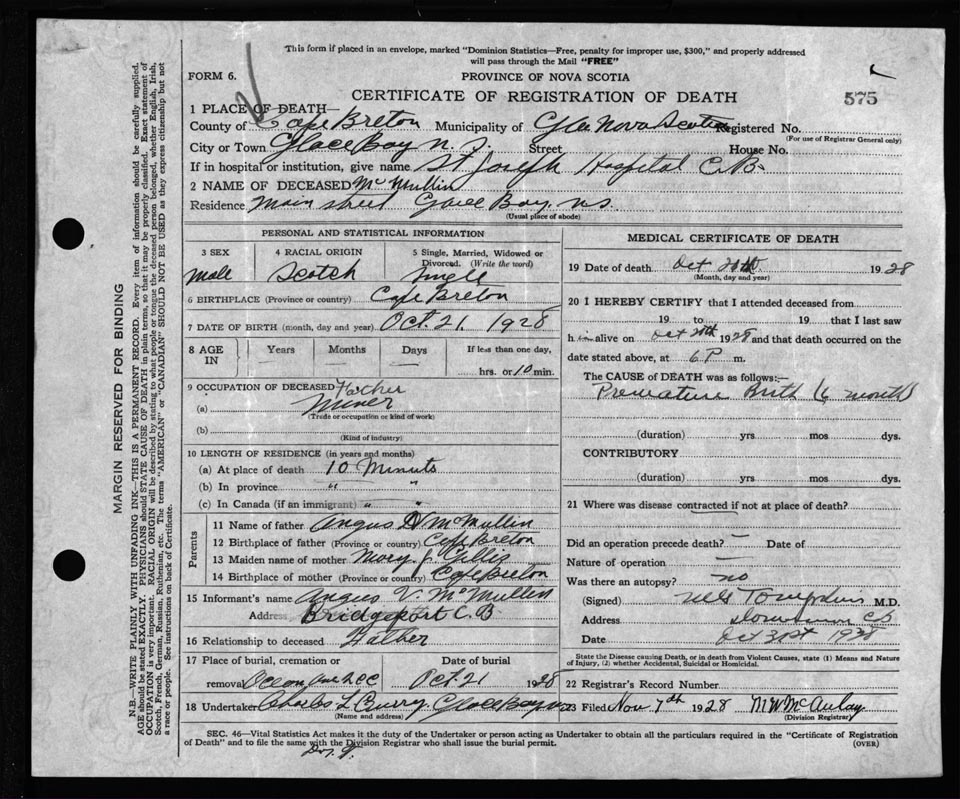 This form if placed in an envelope, marked "Dominion Statistics—Free, penalty for improper use, $300," and properly addressed
will pass through the Mail "FREE"
FORM 6.
PROVINCE OF NOVA SCOTIA
CERTIFICATE OF REGISTRATION OF DEATH
575
1 PLACE OF DEATH—
County of Cape Breton Municipality of Nova Scotia Registered No.
(For use of Registrar General only)
City or Town Glace Bay Street House No.
If in hospital or institution, give name St Joseph Hospital C.B.
2 NAME OF DECEASED McMullin
Residence Main street Glace Bay N.S.
(Usual place of abode)
PERSONAL AND STATISTICAL INFORMATION
3 SEX 4 RACIAL ORIGIN 5 Single, Married, Widowed or Divorced. (Write the word)
Male Scotch Single
6 BIRTHPLACE (Province or country) Cape Breton
7 DATE OF BIRTH (month, day and year) Oct. 21 1928
8 AGE IN Years Months Days If less than one day,
hrs. or 10 min.
9 OCCUPATION OF DECEASED Father
(a) Miner
(Trade or occupation or kind of work)
(b)
(Kind of industry)
10 LENGTH OF RESIDENCE (in years and months)
(a) At place of death 10 Minuts
(b) In province " "
(c) In Canada (if an immigrant) " "
Parents
11 Name of father Angus McMullin
12 Birthplace of father (Province or country) Cape Breton
13 Maiden name of mother Mary J. Gillis
14 Birthplace of mother (Province or country) Cape Breton
15 Informant's name Angus V. McMullin
Address Bridgeport C.B
16 Relationship to deceased Father
17 Place of burial, cremation or removal Date of burial
Oct. 21 1928
18 Undertaker Charles L Curry, Glace Bay
(Name and address)
MEDICAL CERTIFICATE OF DEATH
19 Date of death Oct 1928
(Month, day and year)
20 I HEREBY CERTIFY that I attended deceased from
19 to 19 that I last saw
him alive on Oct 1928 and that death occurred on the
date stated above, at 6 P m.
The CAUSE of DEATH was as follows:—
Premature Birth (6 month)
(duration) yrs mos dys.
CONTRIBUTORY
(duration) yrs mos dys.
21 Where was disease contracted if not at place of death?
Did an operation precede death? — Date of
Nature of operation —
Was there an autopsy? no
(Signed) Tompkins M.D.
Address
Date Oct 31st 1928
State the Disease causing Death, or in death from Violent Causes, state (1) Means and Nature
of Injury, (2) whether Accidental, Suicidal or Homicidal.
22 Registrar's Record Number
23 Filed Nov 7th 1928 M W McAulay
(Division Registrar)
SEC. 46—Vital Statistics Act makes it the duty of the Undertaker or person acting as Undertaker to obtain all the particulars required in the "Certificate of Registration
of Death" and to file the same with the Division Registrar who shall issue the burial permit.
(OVER)
MARGIN RESERVED FOR BINDING
N.B.—WRITE PLAINLY WITH UNFADING INK—THIS IS A PERMANENT RECORD. Every item of information should be carefully supplied.
AGE should be stated EXACTLY. PHYSICIANS should STATE CAUSE OF DEATH in plain terms, so that it may be properly classified. Exact statement of
OCCUPATION is very important. RACIAL ORIGIN will be described by stating to what people or tongue the deceased person belonged, whether English, Irish,
Scotch, French, German, Russian, Ruthenian, etc. The terms "AMERICAN" or "CANADIAN" SHOULD NOT BE USED as they express citizenship but not
a race or people. See instructions on back of Certificate.